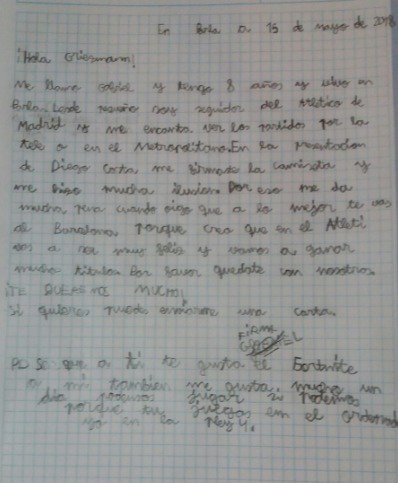 En Parla a 15 de mayo de 2018
¡Hola Griezmann!
Me llamo Gabriel y tengo 8 años y vivo en
Parla. Desde pequeño soy seguidor del Atlético de
Madrid y me encanta ver los partidos por la
tele o en el Metropolitano. En la presentacion
de Diego Costa me firmaste la camiseta y
me hizo mucha ilusion. Por eso me da
mucha pena cuando oigo que a lo mejor te vas
al Barcelona porque creo que en el Atleti
vas a ser muy feliz y vamos a ganar
mucho titulos. Por favor quedate con nosotros.
¡TE QUEREMOS MUCHO!
Si quieres puedes enviarme una carta.
FIRMA
PD Se que a ti te gusta el Fortnite
a mi tambien me gusta mucho un
dia podemos jugar si podemos
porque tu juegas en el ordenador
yo en la Play 4.